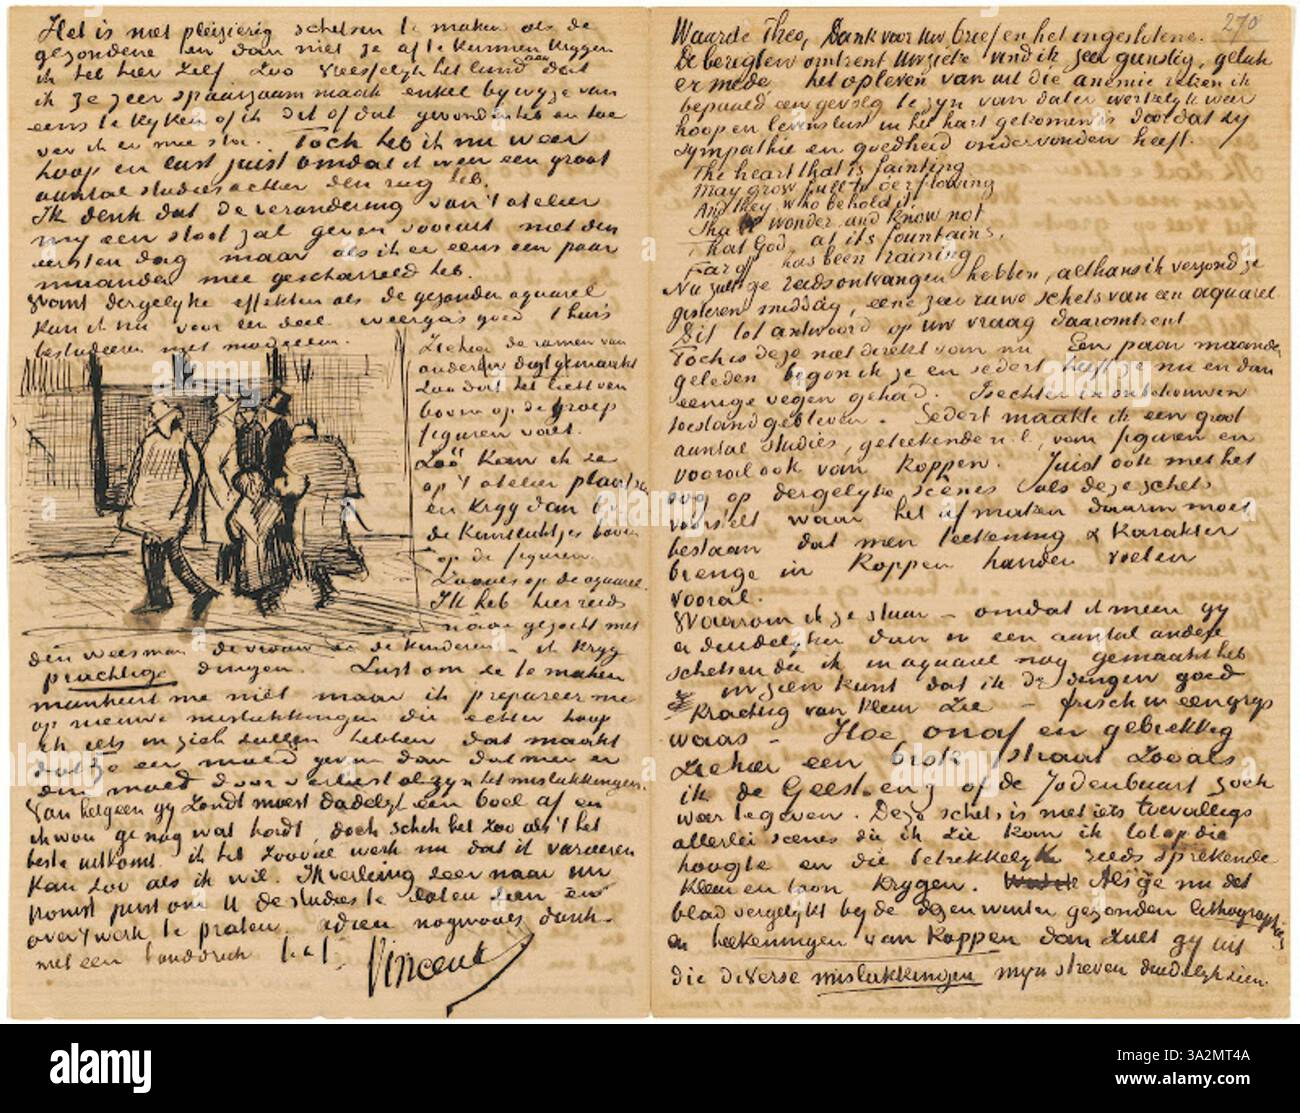 270
Waarde Theo, Dank voor Uw brief en het ingeslotene.
De berigten omtrent Uw zieke vind ik zeer gunstig, geluk
er mede het opleven van uit die anemie reken ik
bepaald een gevolg te zijn van dat er werkelijk weer
hoop en levenslust in het hart gekomen is doordat zij
sympathie en goedheid ondervonden heeft.
The heart that is fainting
May grow full to o'erflowing
And they who behold it
Shall wonder and know not
That God, at its fountains,
Far off has been raining
Nu zult ge reeds ontvangen hebben, althans ik verzond ze
gisteren middag, eene zeer ruwe schets van een aquarel
Dit tot antwoord op uw vraag daaromtrent
Toch is deze niet direkt van nu Een paar maanden
geleden begon ik ze en sedert heeft ze nu en dan
eenige vegen gehad. Echter is
toestand gebleven. Sedert maakte ik een groot
aantal studies, geteekende n.l., van figuren en
vooral ook van koppen. Juist ook met het
oog op dergelijke scènes als deze schets
voorstelt waar het afmaken daarin moet
bestaan dat men teekening & karakter
brenge in koppen handen voeten
vooral.
Waarom ik ze stuur – omdat ik meen gij
er duidelijker dan in een aantal andere
schetsen die ik in aquarel nog gemaakt heb
in zien kunt dat ik de dingen goed
krachtig van kleur zie – frisch in een grijs
waas – Hoe onaf en gebrekkig
Ziehier een brok straat zooals
ik de Geest, eng of de Jodenbuurt zoek
weer te geven. Deze schets is niet iets toevalligs
allerlei scènes die ik zie kan ik tot op die
hoogte en die betrekkelijk reeds sprekende
kleur en toon krijgen. Als ge nu dit
blad vergelijkt bij de dezen winter gezonden lithographies
en teekeningen van koppen dan zult gij uit
die diverse mislukkingen mijn streven duidelijk zien.
Het is niet pleizierig schetsen te maken als de
gezondene en dan niet ze af te kunnen krijgen
ik heb hier zelf zoo vreeselijk het land aan dat
ik ze zeer spaarzaam maak enkel bij wijze van
eens te kijken of ik dit of dat gewonnen heb en hoe
ver ik er mee sta. Toch heb ik nu weer
hoop en lust juist omdat ik weer een groot
aantal studies achter den rug heb.
Ik denk dat de verandering van 't atelier
mij een stoot zal geven vooruit niet den
eersten dag maar als ik er eens een paar
maanden mee gescharreld heb.
Want dergelijke effekten als de gezonden aquarel
kan ik nu voor een deel weergaas goed t'huis
bestudeeren met modellen.
Ziehier de ramen van
zoo dat het licht van
boven op de groep
figuren valt.
Zóó kan ik ze
op 't atelier plaatsen
en krijg dan
de kantlichtjes boven
op de figuren.
Zooals op de aquarel.
Ik heb hier reeds
naar gezocht met
den weesman de vrouw & de kinderen – ik krijg
prachtige dingen. Lust om ze te maken
mankeert me niet maar ik prepareer me
op nieuwe mislukkingen die echter hoop
ik iets in zich zullen hebben dat maakt
dat ze een moed geven dan dat men er
den moed door verliest al zijn het mislukkingen.
Van hetgeen gij zondt moest dadelijk een boel af en
ik wou ge nog wat hadt doch schik het zoo als 't het
beste uitkomt. ik heb zooveel werk nu dat ik varieeren
kan zoo als ik wil. Ik verlang zeer naar uw
komst juist om U de studies te laten zien en
over 't werk te praten. adieu nogmaals dank.
met een handdruk t.à t.
Vincent
alamy
Image ID: 3A2MT4A
www.alamy.com